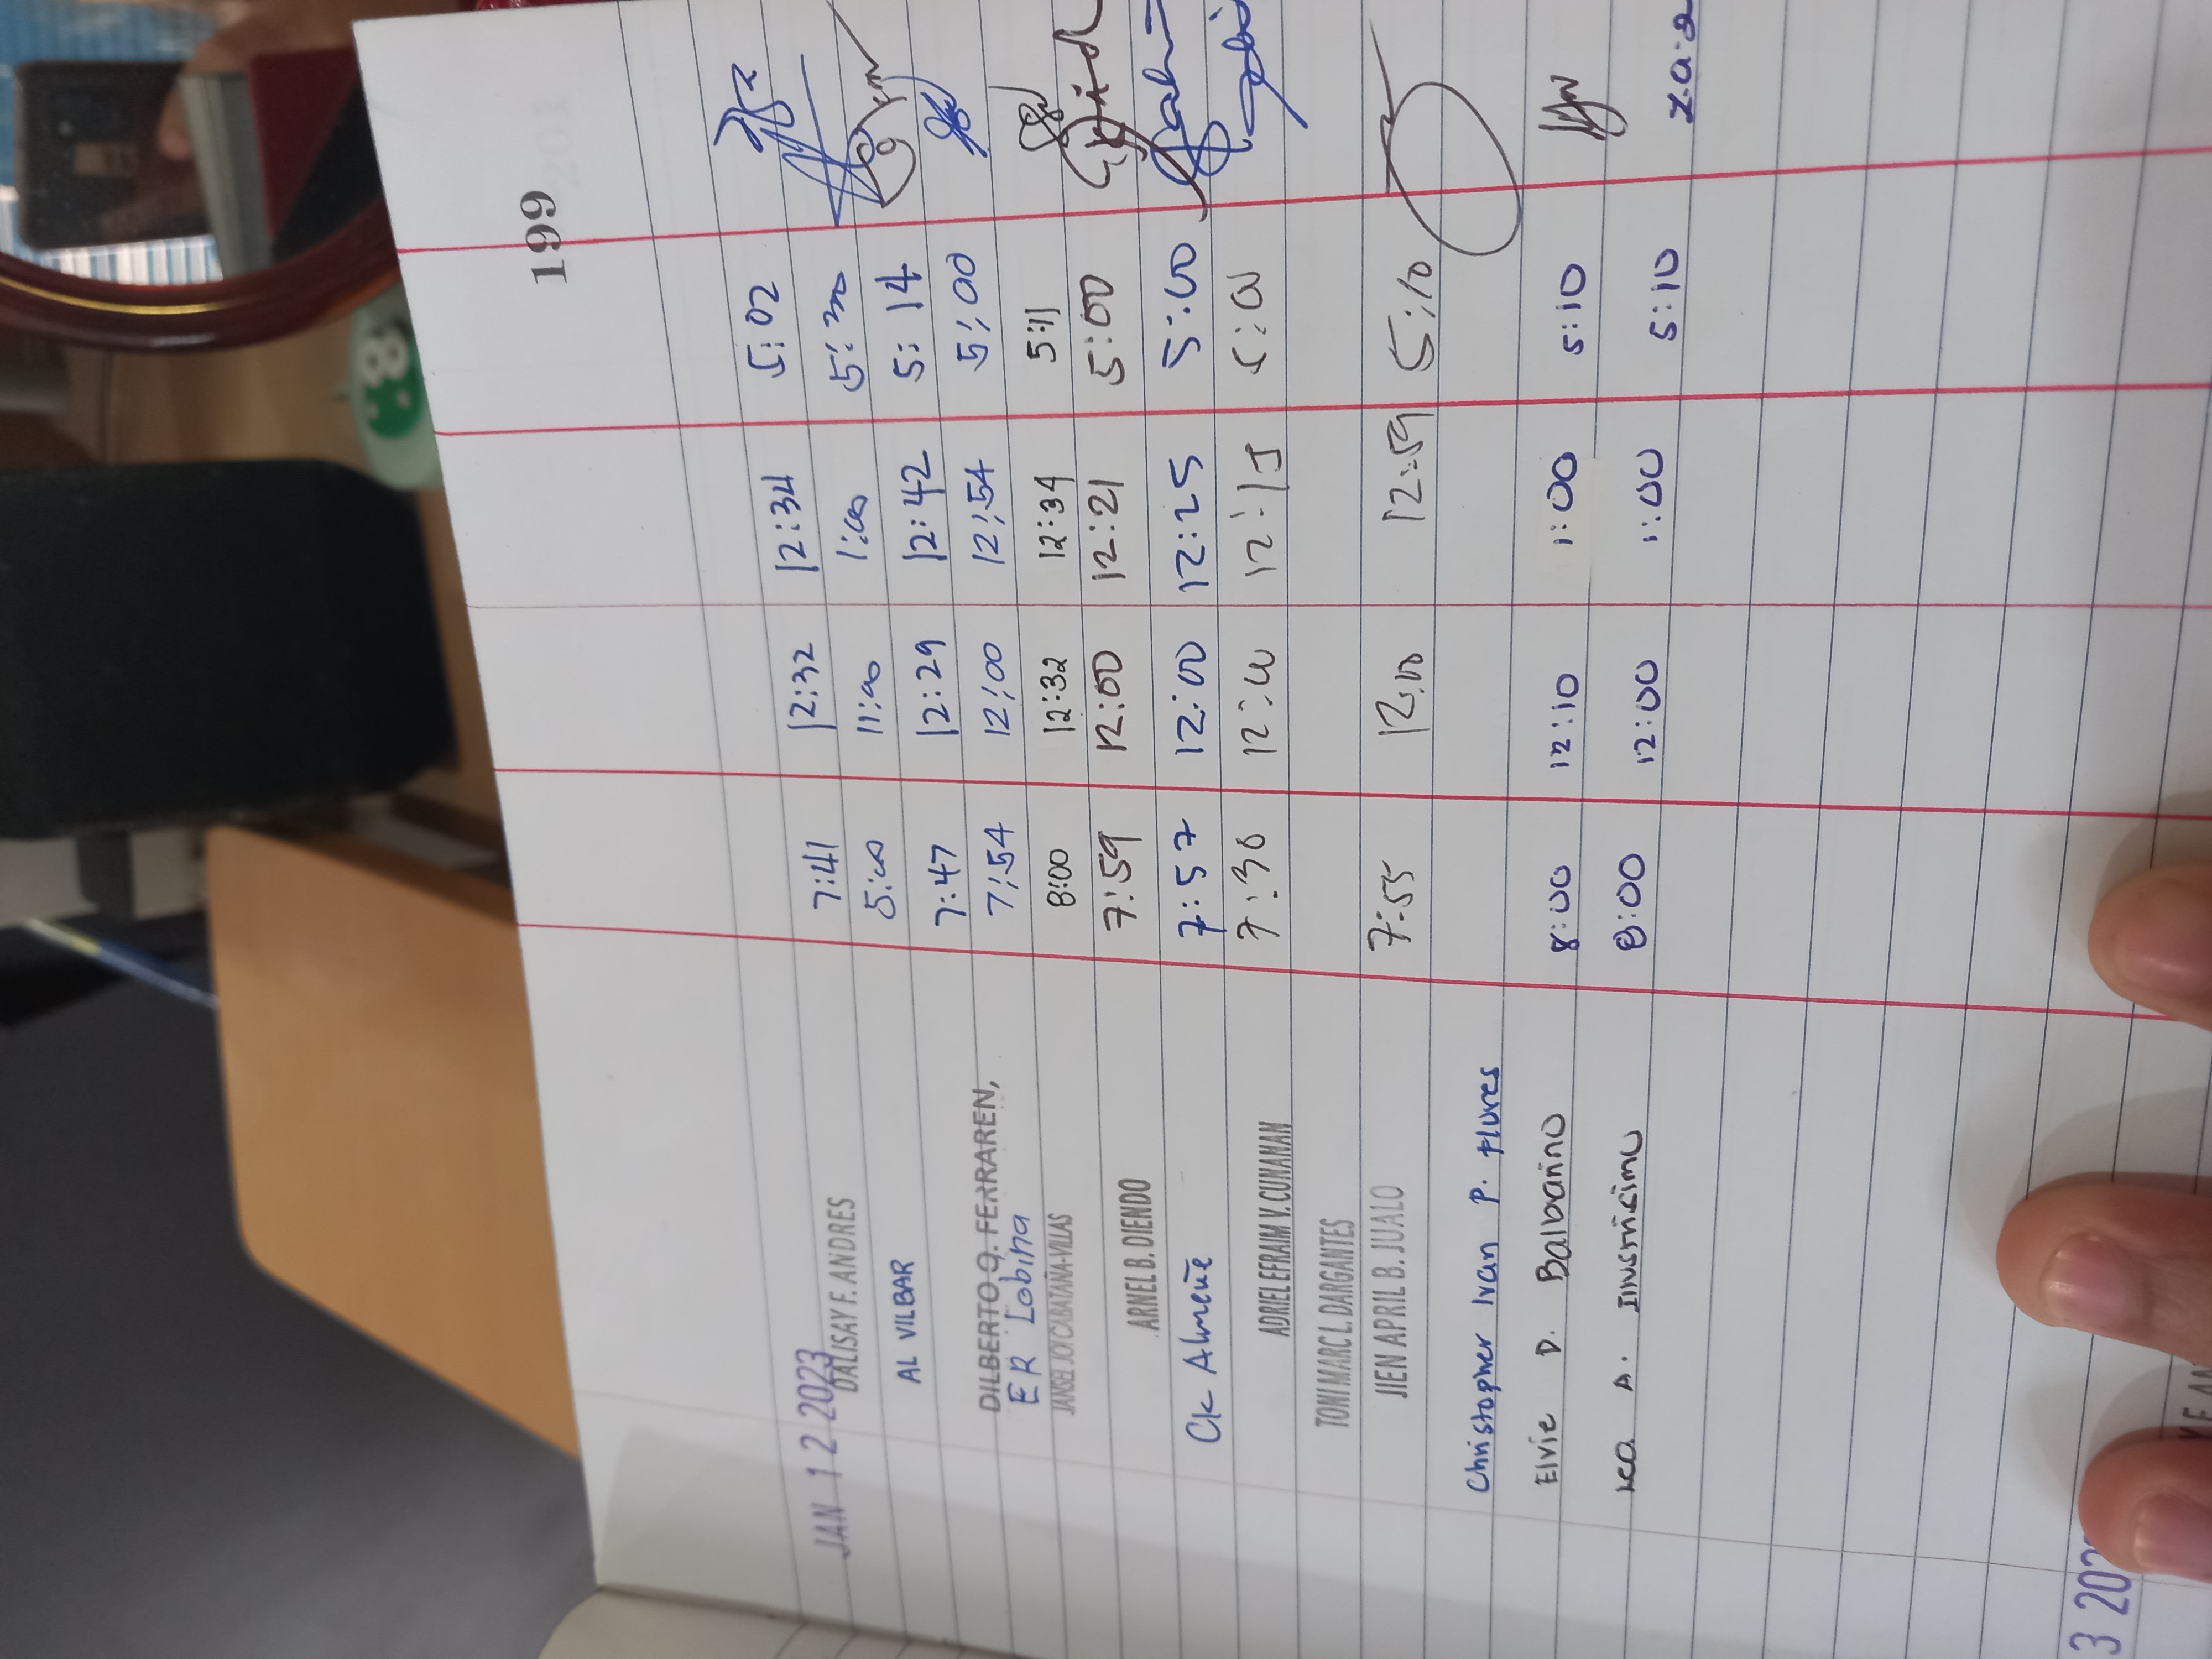 199
JAN 12 2023
DALISAY F. ANDRES 7:41 12:32 12:34 5:02
AL VILBAR 5:00 11:00 1:00 5:30
7:47 12:29 12:42 5:14
DILBERTO Q. FERRAREN,
ER Lobina 7:54 12:00 12:54 5:00
JANSEL JOI CABATAÑA-VILLAS 8:00 12:32 12:34 5:11
ARNEL B. DIENDO 7:59 12:00 12:21 5:00
CK Almeñe 7:57 12:00 12:25 5:00
ADRIEL EFRAIM V. CUNANAN 7:30 12:00 12:15 5:00
TONI MARC L. DARGANTES
JIEN APRIL B. JUALO 7:55 12:00 12:59 5:10
Christopher Ivan P. Flores
Elvie D. Balbarino 8:00 12:10 1:00 5:10
Lea A. 8:00 12:00 1:00 5:10
3 202